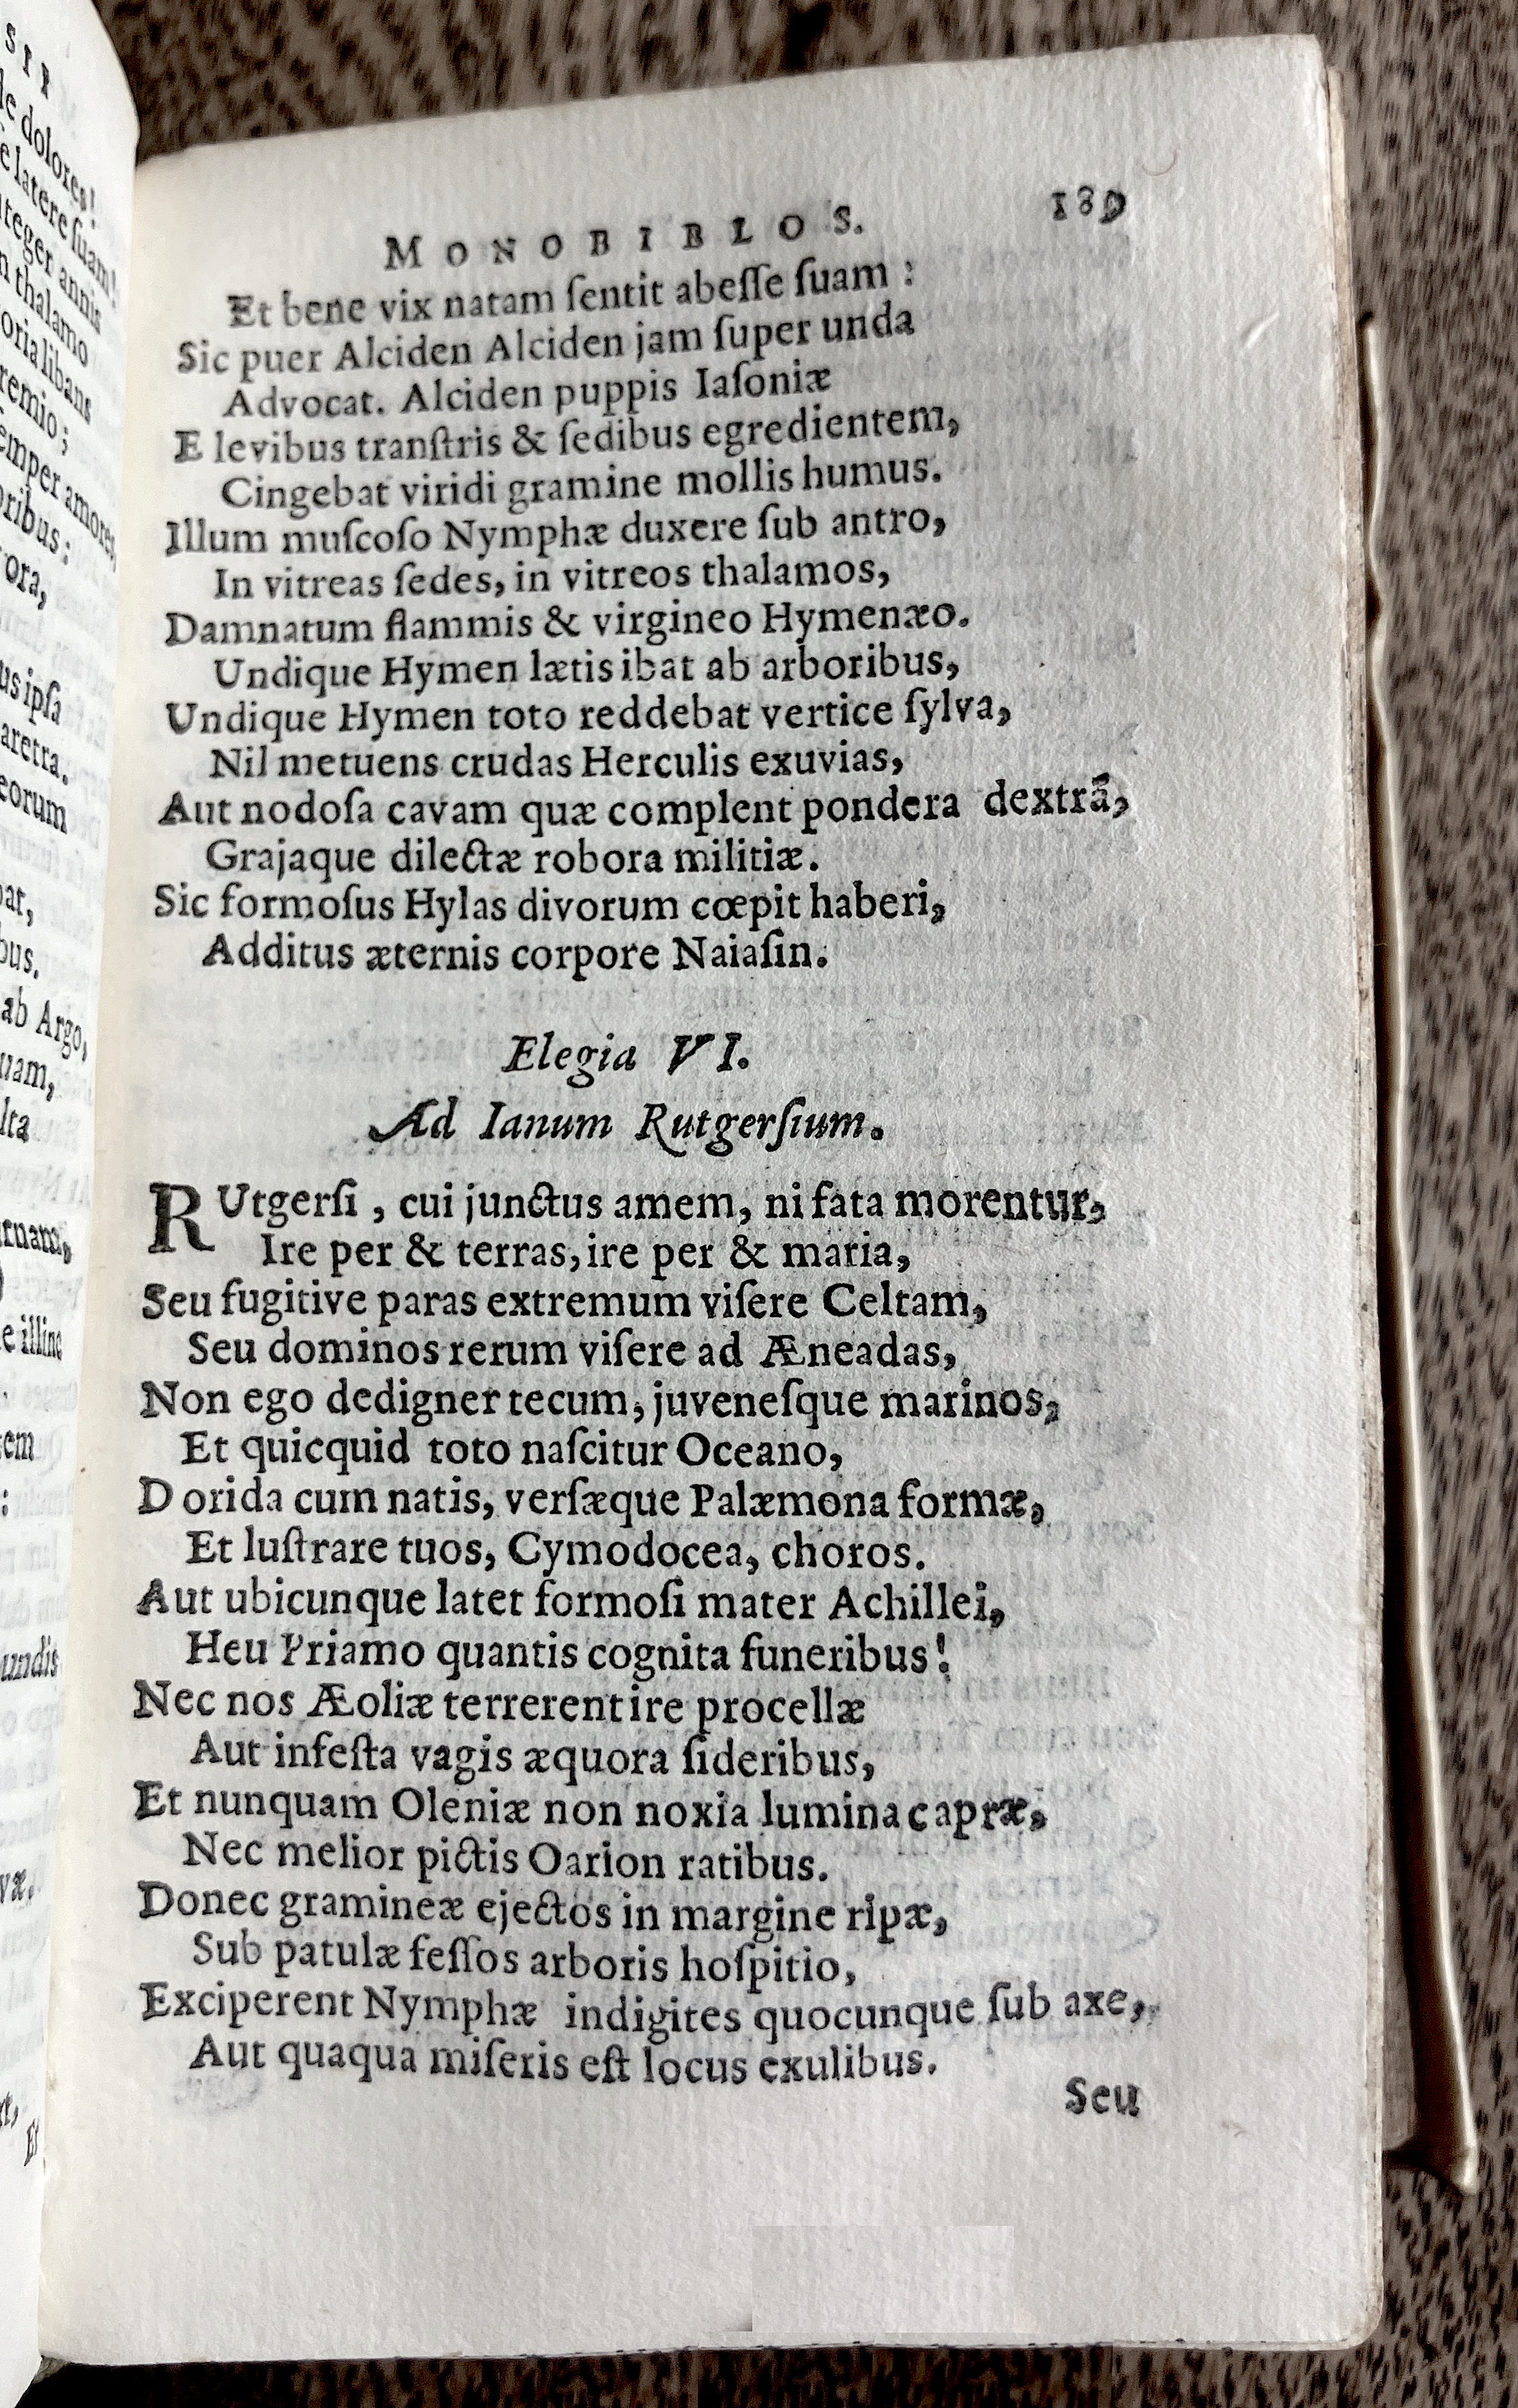 MONOBIBLOS. 189
Et bene vix natam ſentit abeſſe ſuam :
Sic puer Alciden Alciden jam ſuper unda
Advocat. Alciden puppis Iaſoniæ
E levibus tranſtris & ſedibus egredientem,
Cingebat viridi gramine mollis humus.
Illum muſcoſo Nymphæ duxere ſub antro,
In vitreas ſedes, in vitreos thalamos,
Damnatum flammis & virgineo Hymenæo.
Undique Hymen lætis ibat ab arboribus,
Undique Hymen toto reddebat vertice ſylva,
Nil metuens crudas Herculis exuvias,
Aut nodoſa cavam quæ complent pondera dextrā,
Grajaque dilectæ robora militiæ.
Sic formoſus Hylas divorum cœpit haberi,
Additus æternis corpore Naiaſin.
Elegia VI.
Ad Ianum Rutgerſium.
RUtgerſi, cui junctus amem, ni fata morentur,
Ire per & terras, ire per & maria,
Seu fugitive paras extremum viſere Celtam,
Seu dominos rerum viſere ad Æneadas,
Non ego dedigner tecum, juveneſque marinos,
Et quicquid toto naſcitur Oceano,
Dorida cum natis, verſæque Palæmona formæ,
Et luſtrare tuos, Cymodocea, choros.
Aut ubicunque latet formoſi mater Achillei,
Heu Priamo quantis cognita funeribus!
Nec nos Æoliæ terrerent ire procellæ
Aut infeſta vagis æquora ſideribus,
Et nunquam Oleniæ non noxia lumina capræ,
Nec melior pictis Oarion ratibus.
Donec gramineæ ejectos in margine ripæ,
Sub patulæ feſſos arboris hoſpitio,
Exciperent Nymphæ indigites quocunque ſub axe,
Aut quaqua miſeris eſt locus exulibus.
Seu